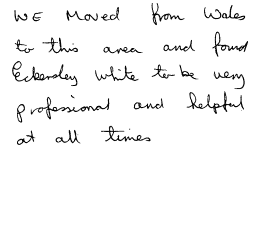 WE Moved from Wales
to this area and found
Eckersley white to be very
professional and helpful
at all times